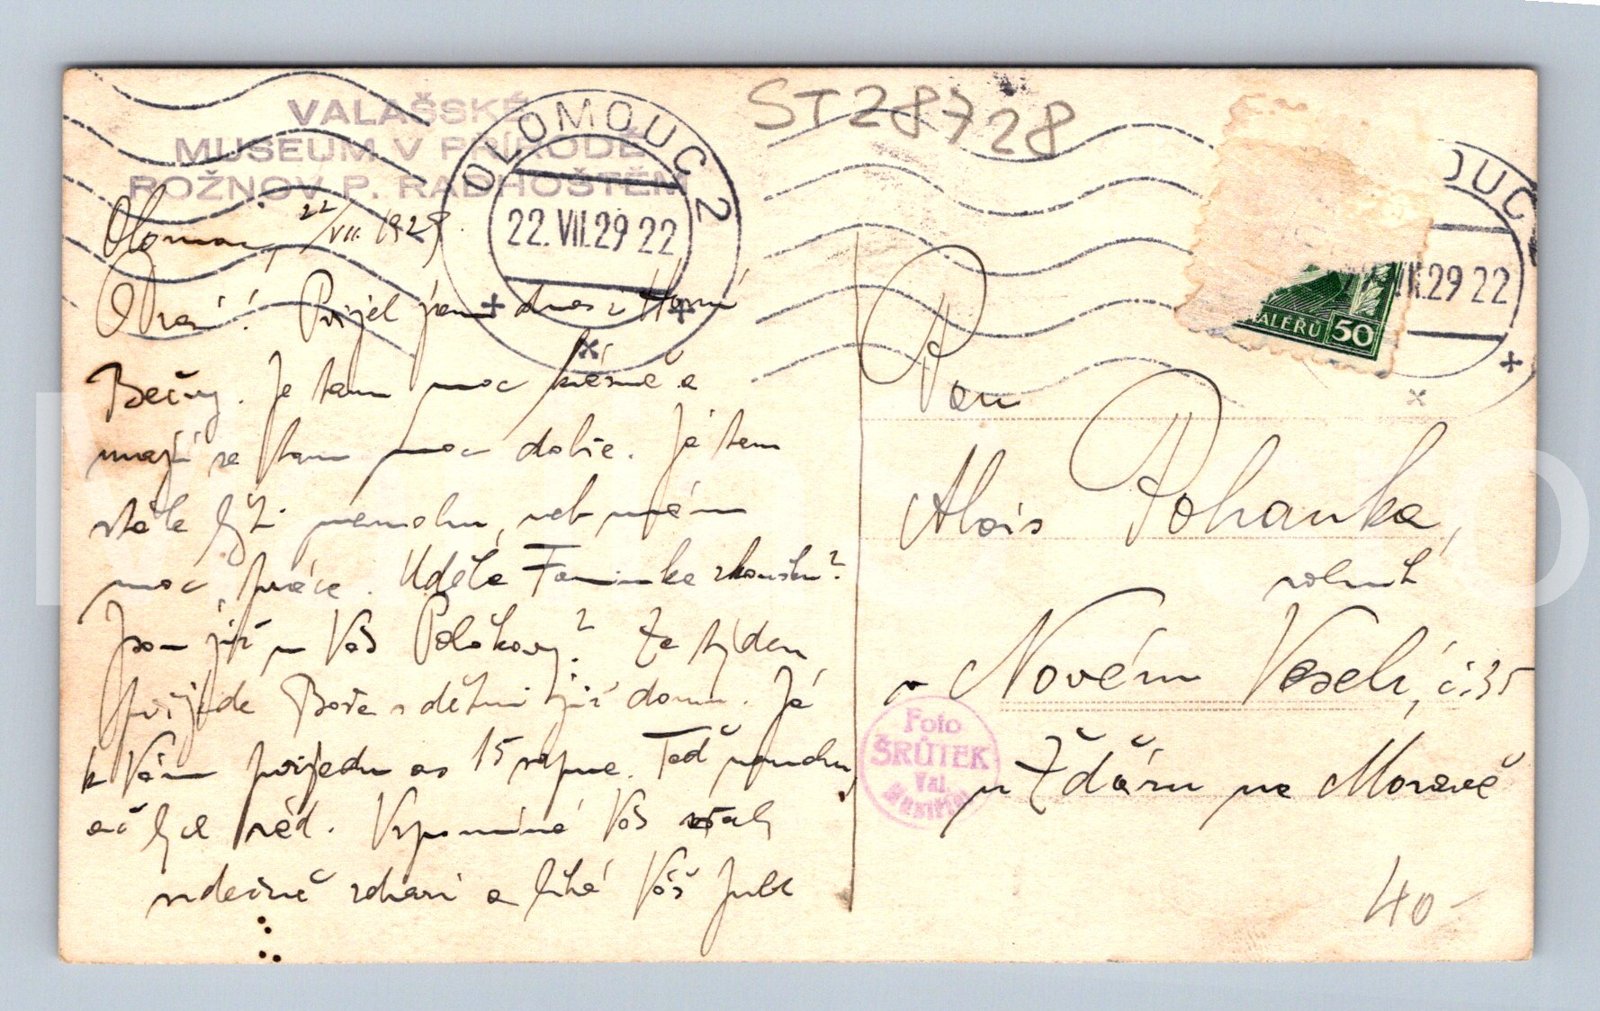 VALAŠSKÉ
MUSEUM V PŘÍRODĚ
ROŽNOV P. RADHOŠTĚM
OLOMOUC 2
22.VII.29 22
ST28728
OUC
VII.29 22
HALÉŘŮ 50
Olomouc, 22/VII. 1929.
Drazí! Přijel jsem dnes z Horní
Bečvy. Je tam moc krásně a
mají se tam moc dobře. Já tam
stále být nemohu, neb mám
moc práce. Udělá Faninka zkoušku?
Jsou již u Vás Polákovy? Za týden
přijede Boža s dětmi již domů. Já
k Vám přijedu as 15 srpna. Teď nemohu
ač bych rád. Vzpomíná Vás
srdečně zdraví a líbá Váš
Pan
Alois Pohanka,
rolník
v Novém Veselí, č. 35
u Žďáru na Moravě
Foto
ŠRŮTEK
Val.
40-